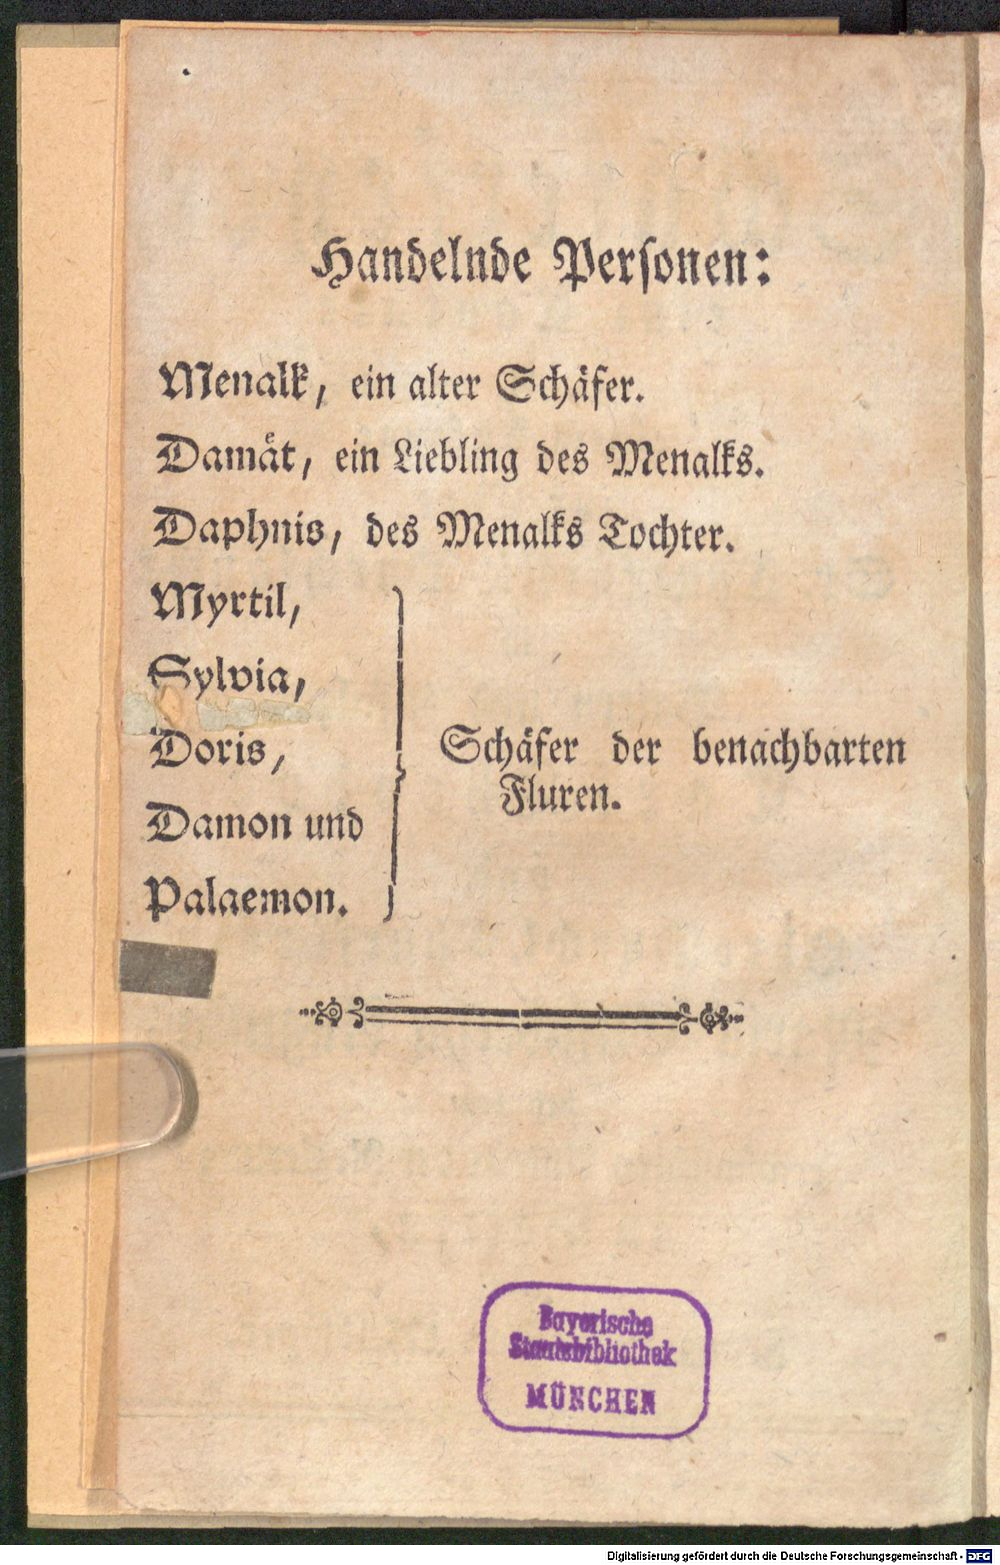 Handelnde Perſonen:
Menalk, ein alter Schäfer.
Damät, ein Liebling des Menalks.
Daphnis, des Menalks Tochter.
Myrtil,
Sylvia,
Doris,
Damon und
Palaemon.
Schäfer der benachbarten
Fluren.
Bayerische
Staatsbibliothek
MÜNCHEN
Digitalisierung gefördert durch die Deutsche Forschungsgemeinschaft - DFG